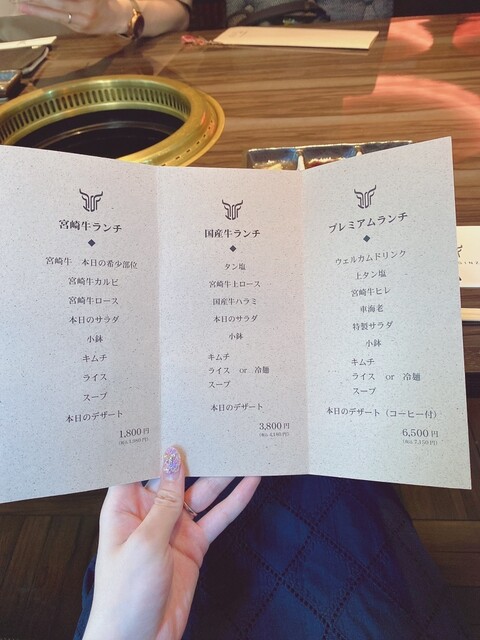 宮崎牛ランチ
◆
宮崎牛 本日の希少部位
宮崎牛カルビ
宮崎牛ロース
本日のサラダ
小鉢
キムチ
ライス
スープ
本日のデザート
1,800円
(税込1,980円)
国産牛ランチ
◆
タン塩
宮崎牛上ロース
国産牛ハラミ
本日のサラダ
小鉢
キムチ
ライス or 冷麺
スープ
本日のデザート
3,800円
(税込4,180円)
プレミアムランチ
◆
ウェルカムドリンク
上タン塩
宮崎牛ヒレ
車海老
特製サラダ
小鉢
キムチ
ライス or 冷麺
スープ
本日のデザート（コーヒー付）
6,500円
(税込7,150円)